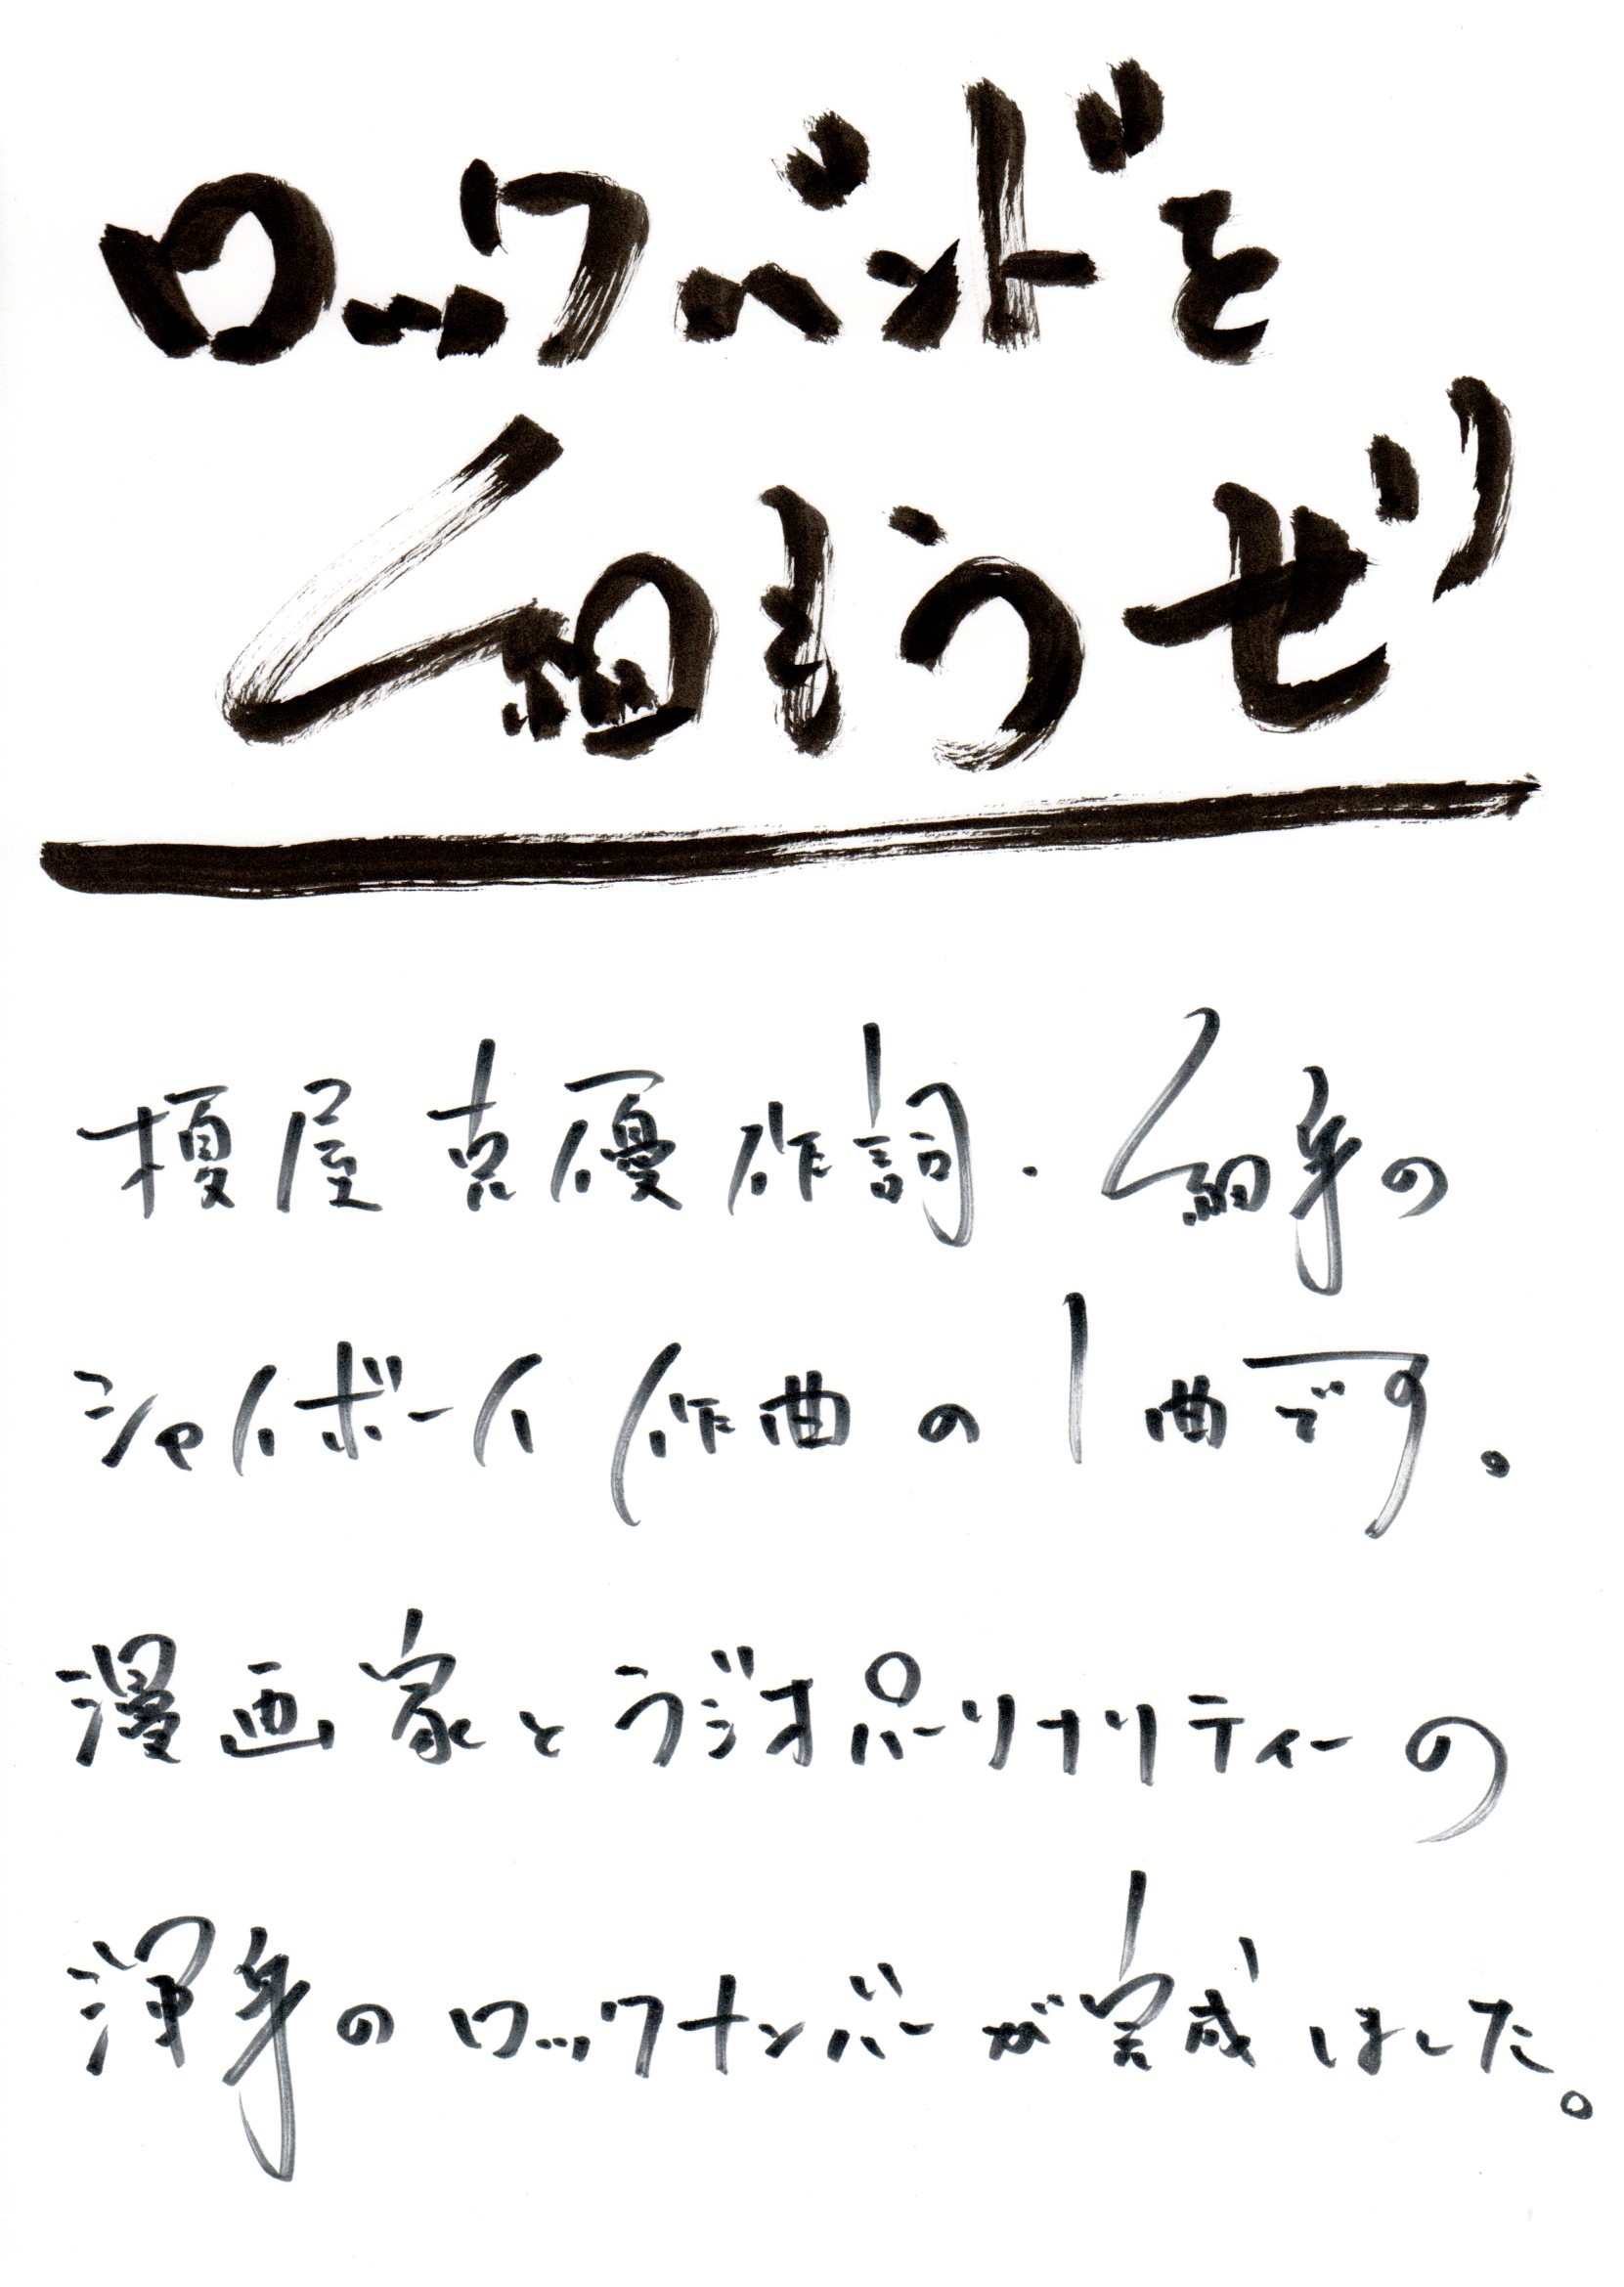 ロックバンドを
組もうぜ
榎屋克優作詞・細身の
シャイボーイ作曲の1曲です。
漫画家とラジオパーソナリティーの
渾身のロックナンバーが完成しました。